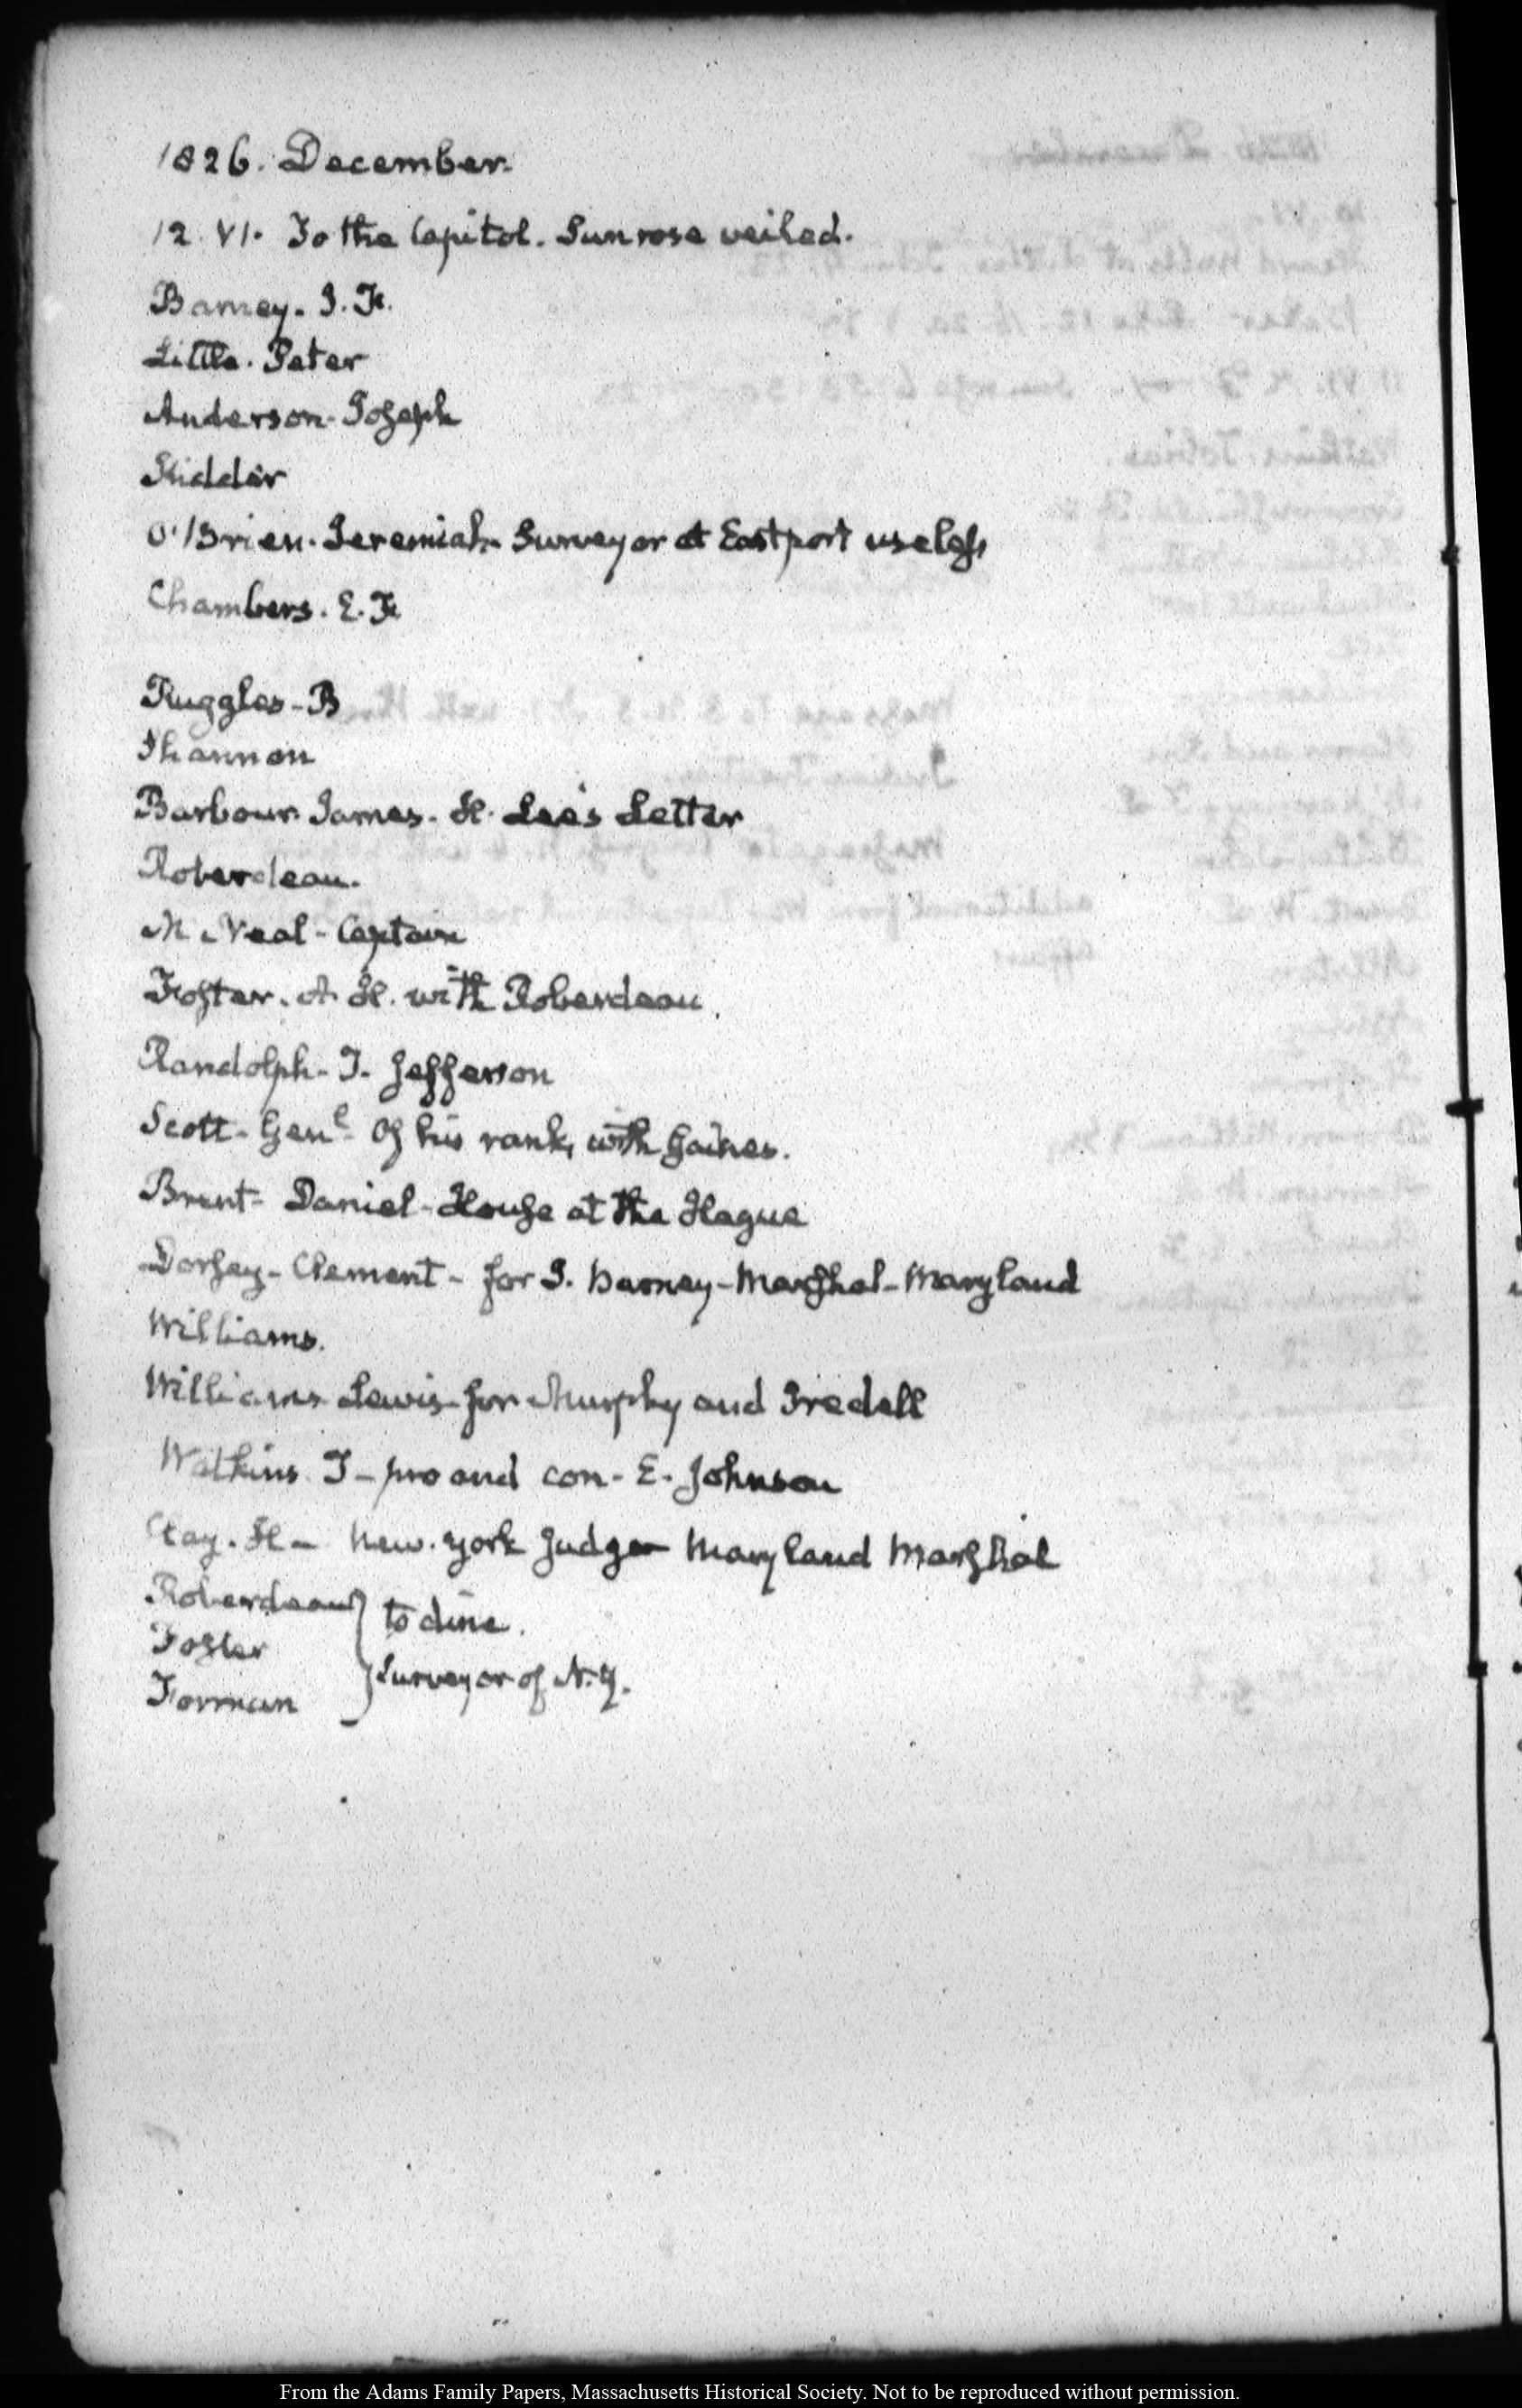 1826. December.
12. VI. To the Capitol. Sun rose veiled.
Barney. J. H.
Little. Peter
Anderson. Joseph
Kidder
O'Brien. Jeremiah. Surveyor at Eastport useless
Chambers. E. F.
Ruggles - B
Thannon
Barbour James. H. Lee's Letter
Roberdeau.
M'Neal - Captain
Foster. A. H. with Roberdeau.
Randolph - T. Jefferson
Scott - Genl. Of his rank, with Gaines.
Brent - Daniel - House at the Hague
Dorsey - Clement - for J. Barney - Marshal - Maryland
Williams.
Williams Lewis for Murphy and Iredell
Watkins. T - pro and con - E. Johnson
Clay. H - New. York Judge - Maryland Marshal
Roberdeau } to dine.
Foster
Forman } Surveyor of N.Y.
From the Adams Family Papers, Massachusetts Historical Society. Not to be reproduced without permission.